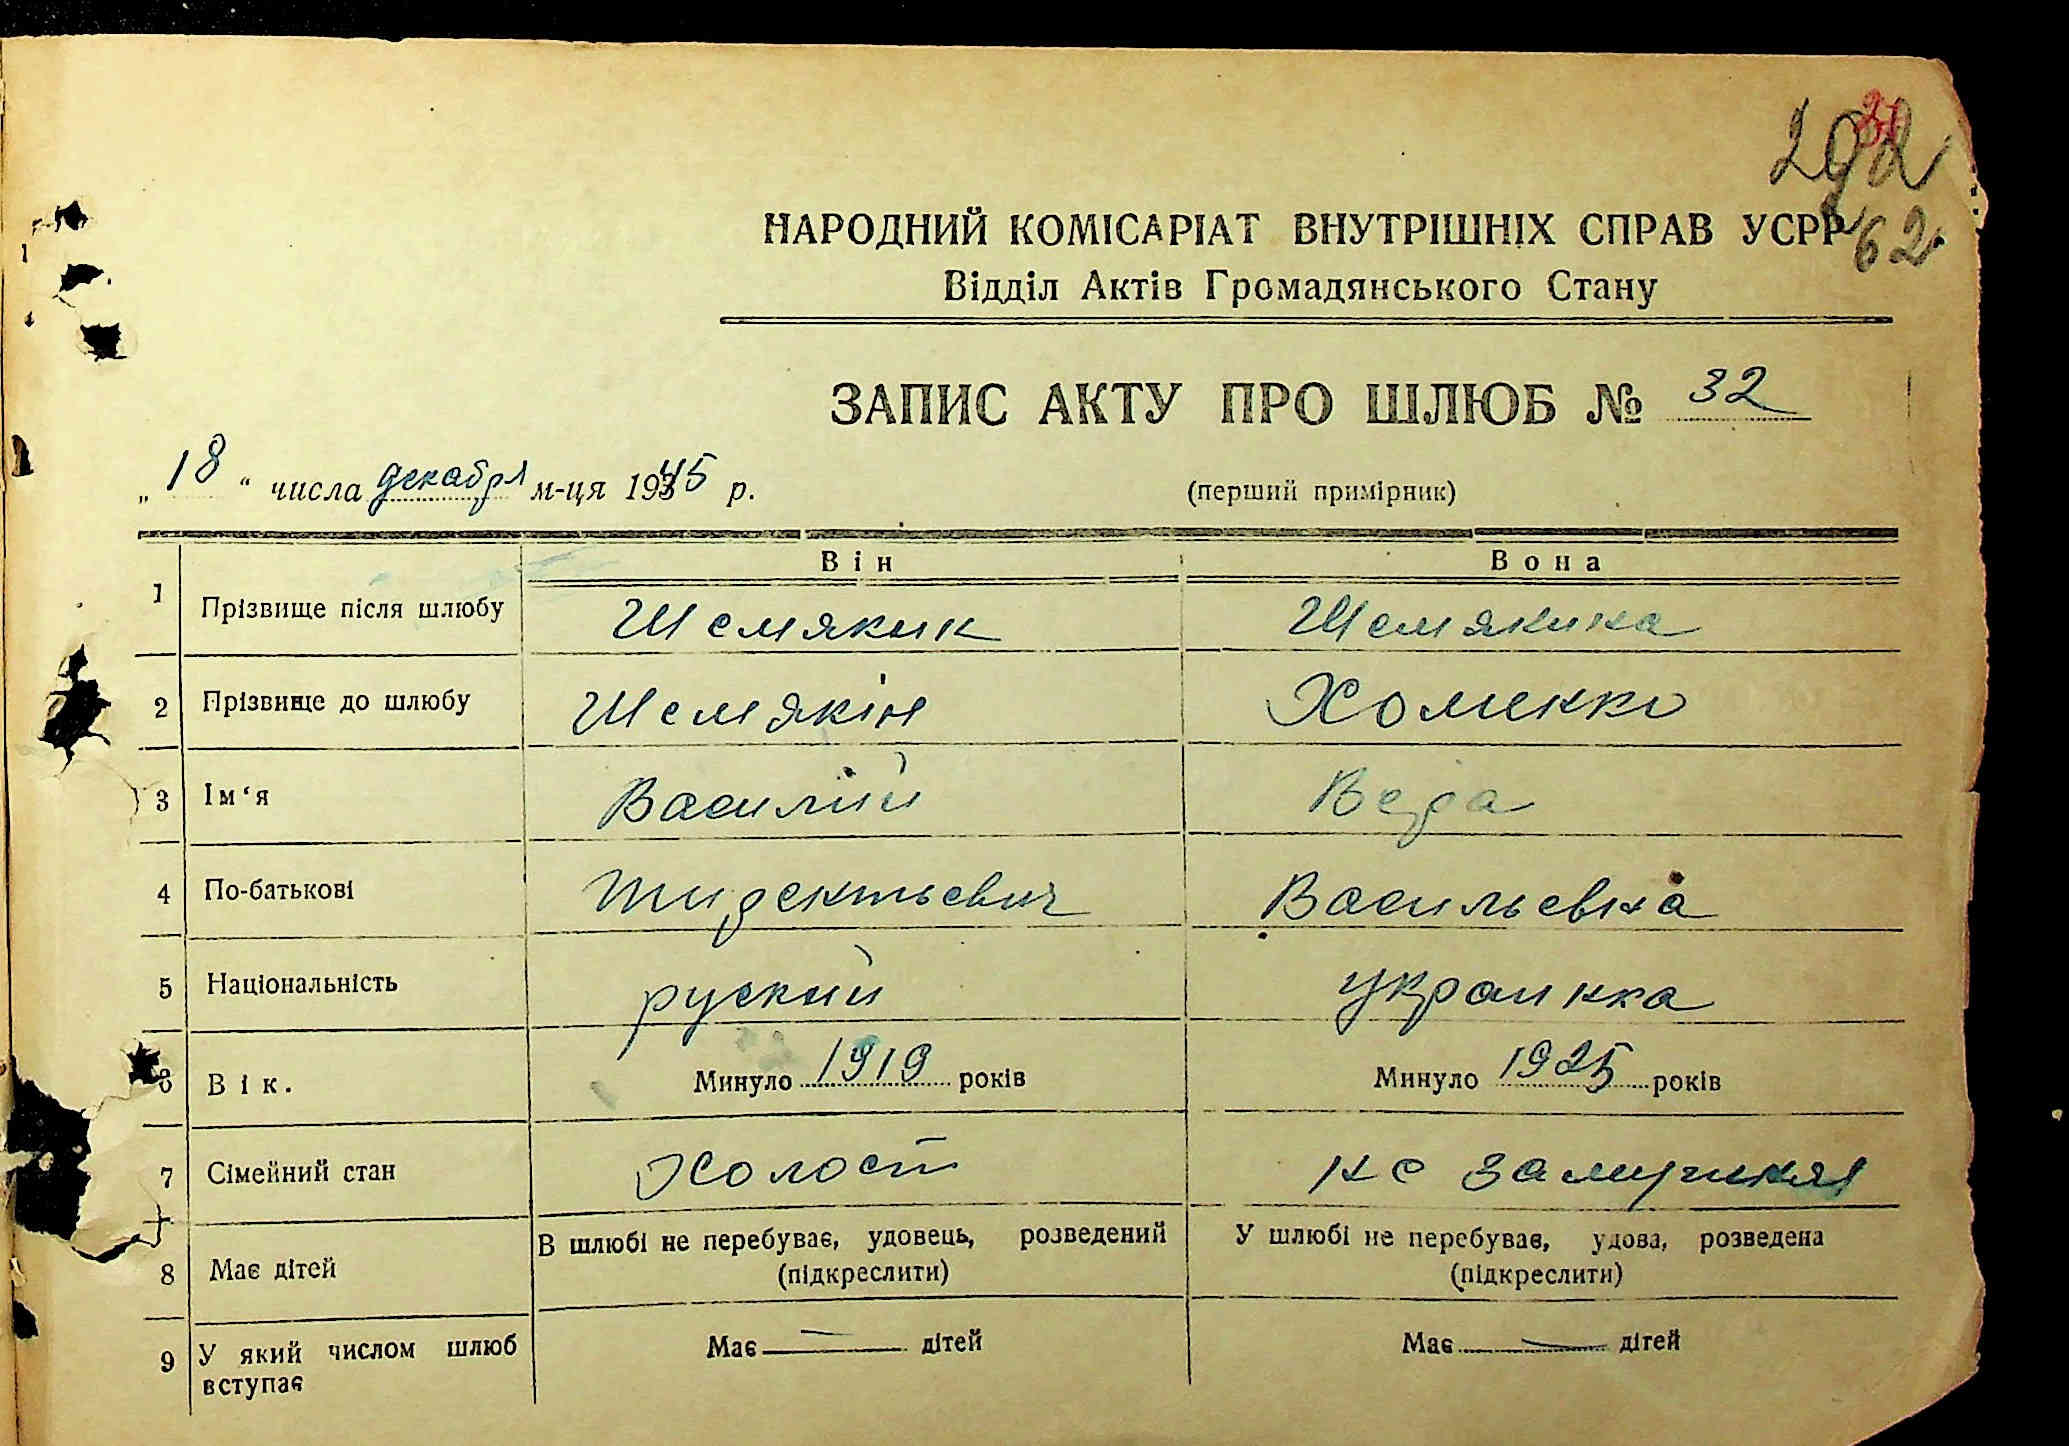 292
62
НАРОДНИЙ КОМІСАРІАТ ВНУТРІШНІХ СПРАВ УСРР
Відділ Актів Громадянського Стану
ЗАПИС АКТУ ПРО ШЛЮБ № 32
„18“ числа декабря м-ця 1945 р.
(перший примірник)
Він Вона
1 Прізвище після шлюбу Шемякин Шемякина
2 Прізвище до шлюбу Шемякін Хоменко
3 Ім‘я Василий Вера
4 По-батькові Васильевна
5 Національність руский украинка
6 Вік. Минуло 1919 років Минуло 1925 років
7 Сімейний стан Холост не замужняя
8 Має дітей В шлюбі не перебуває, удовець, розведений (підкреслити) У шлюбі не перебував, удова, розведена (підкреслити)
9 У який числом шлюб вступає Має — дітей Має — дітей